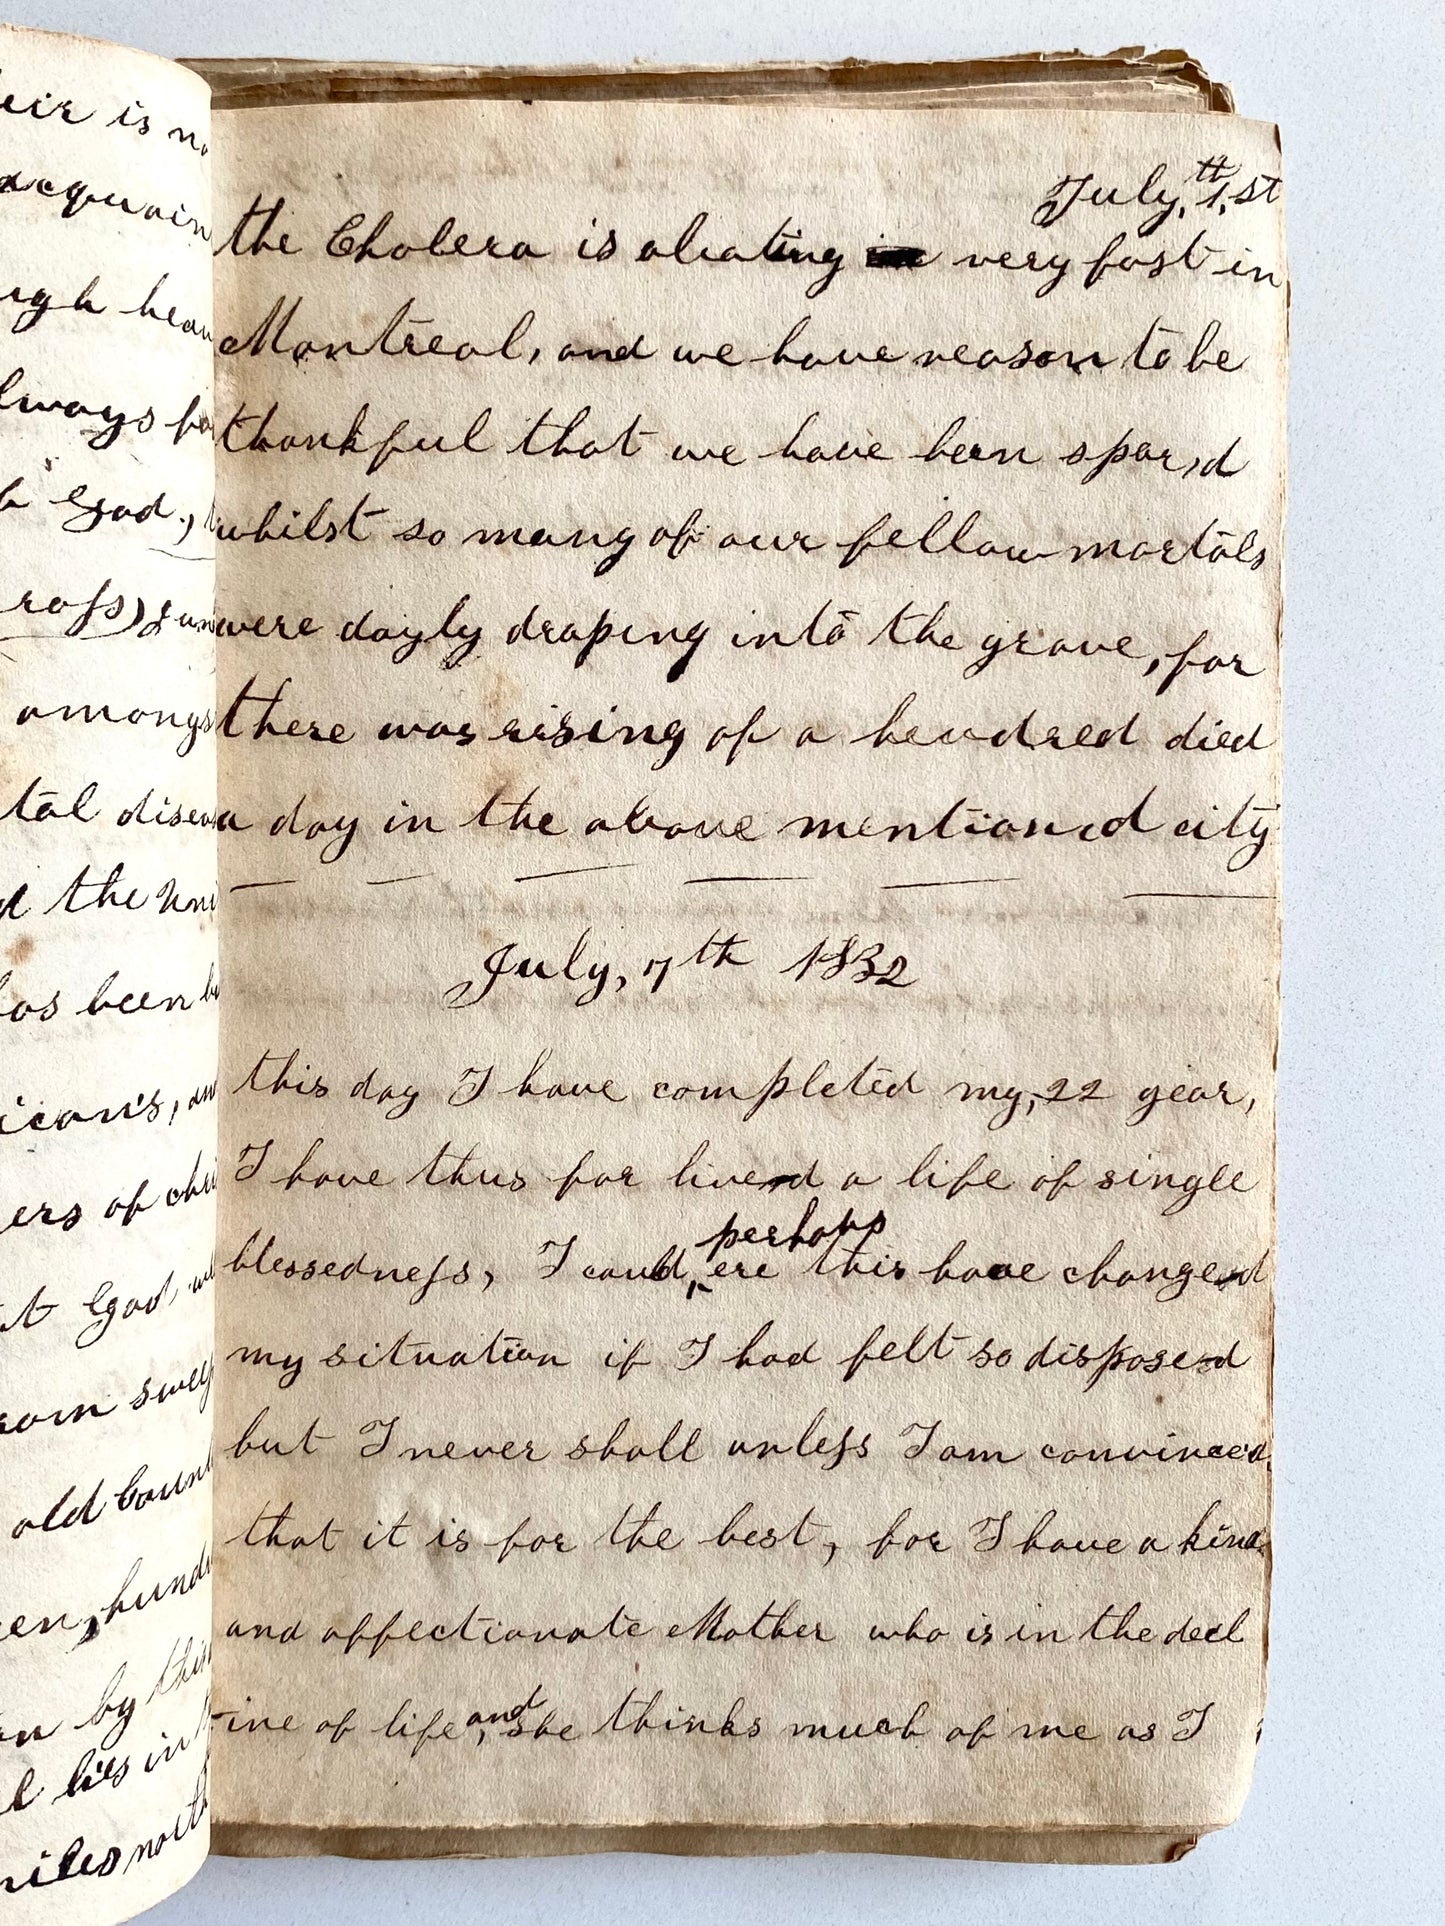 eir is no
acquain
ugh hea
lways fo
h God.,
ross)
amongs
tal diseas
d the Uni
has been b
icans, an
ers of chri
t God
rom swep
old Coun
een, hund
n by this
l lies in
miles north
July, 1,st
th
the Cholera is abating very fast in
Montreal, and we have reason to be
thankful that we have been spar,d
whilst so many of our fellow mortals
were dayly droping into the grave, for
there was rising of a hundred died
a day in the above mentioned city
July, 7th 1832
this day I have completed my, 22 year,
I have thus far lived a life of single
perhaps
blessedness, I could, ere this have changed
my situation if I had felt so disposed
but I never shall unless I am convinced
that it is for the best, for I have a kind
and affectionate Mother who is in the decl
-ine of life, and she thinks much of me as I